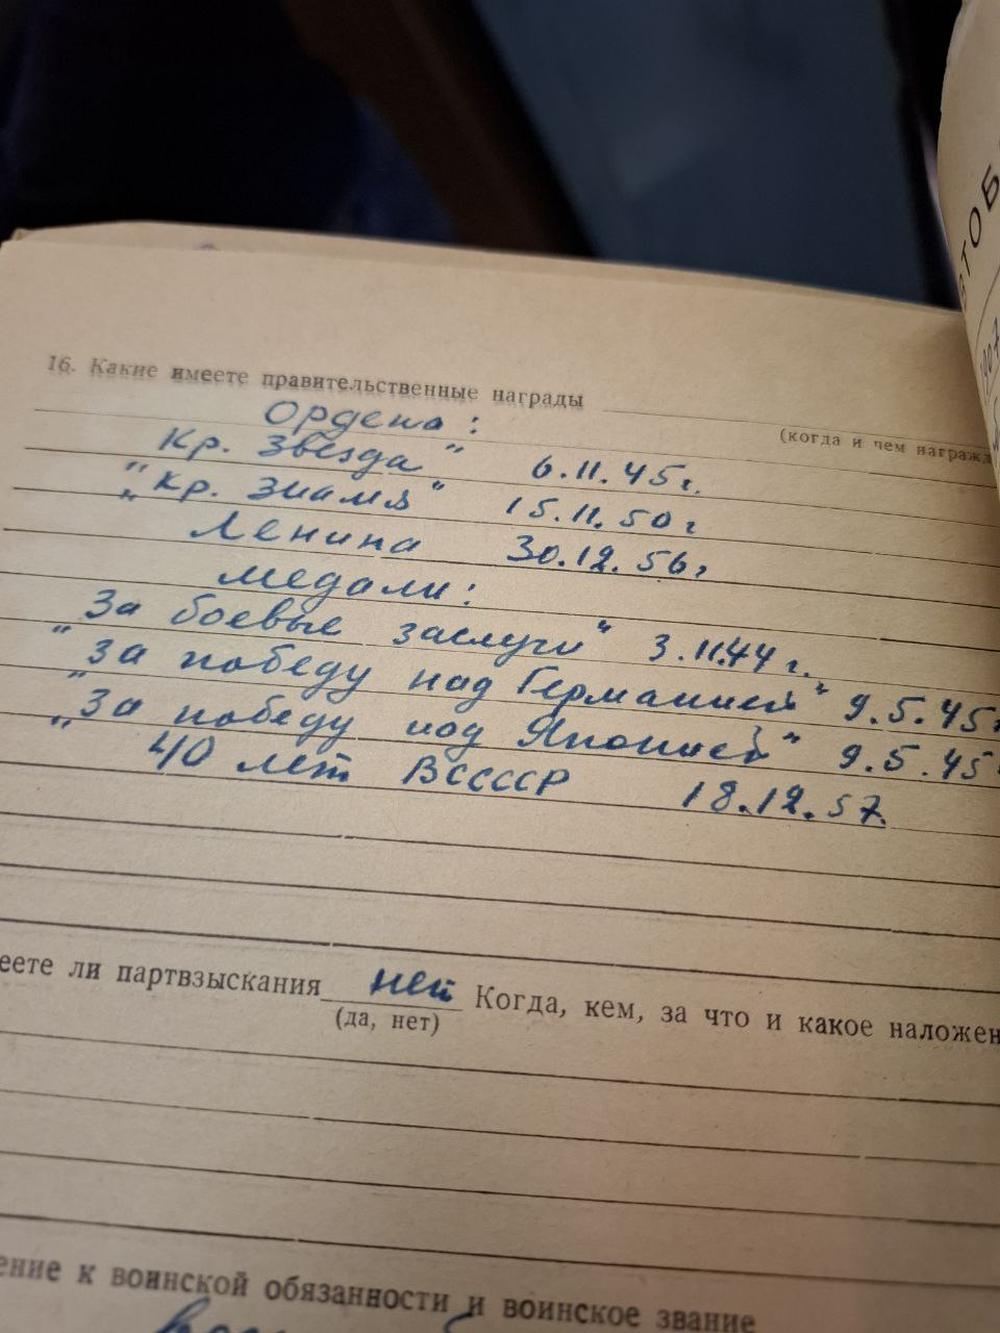 16. Какие имеете правительственные награды
(когда и чем награжд
Ордена:
Кр. Звезда" 6.11.45г.
""Кр. Знамя" 15.11.50г
Ленина 30.12.56г
Медали:
За боевые заслуги" 3.11.44г.
"За победу над Германией" 9.5.45г
"За победу над Японией" 9.5.45
" 40 лет ВССССР 18.12.57.
еете ли партвзыскания нет Когда, кем, за что и какое наложен
(да, нет)
ение к воинской обязанности и воинское звание
ТОБ